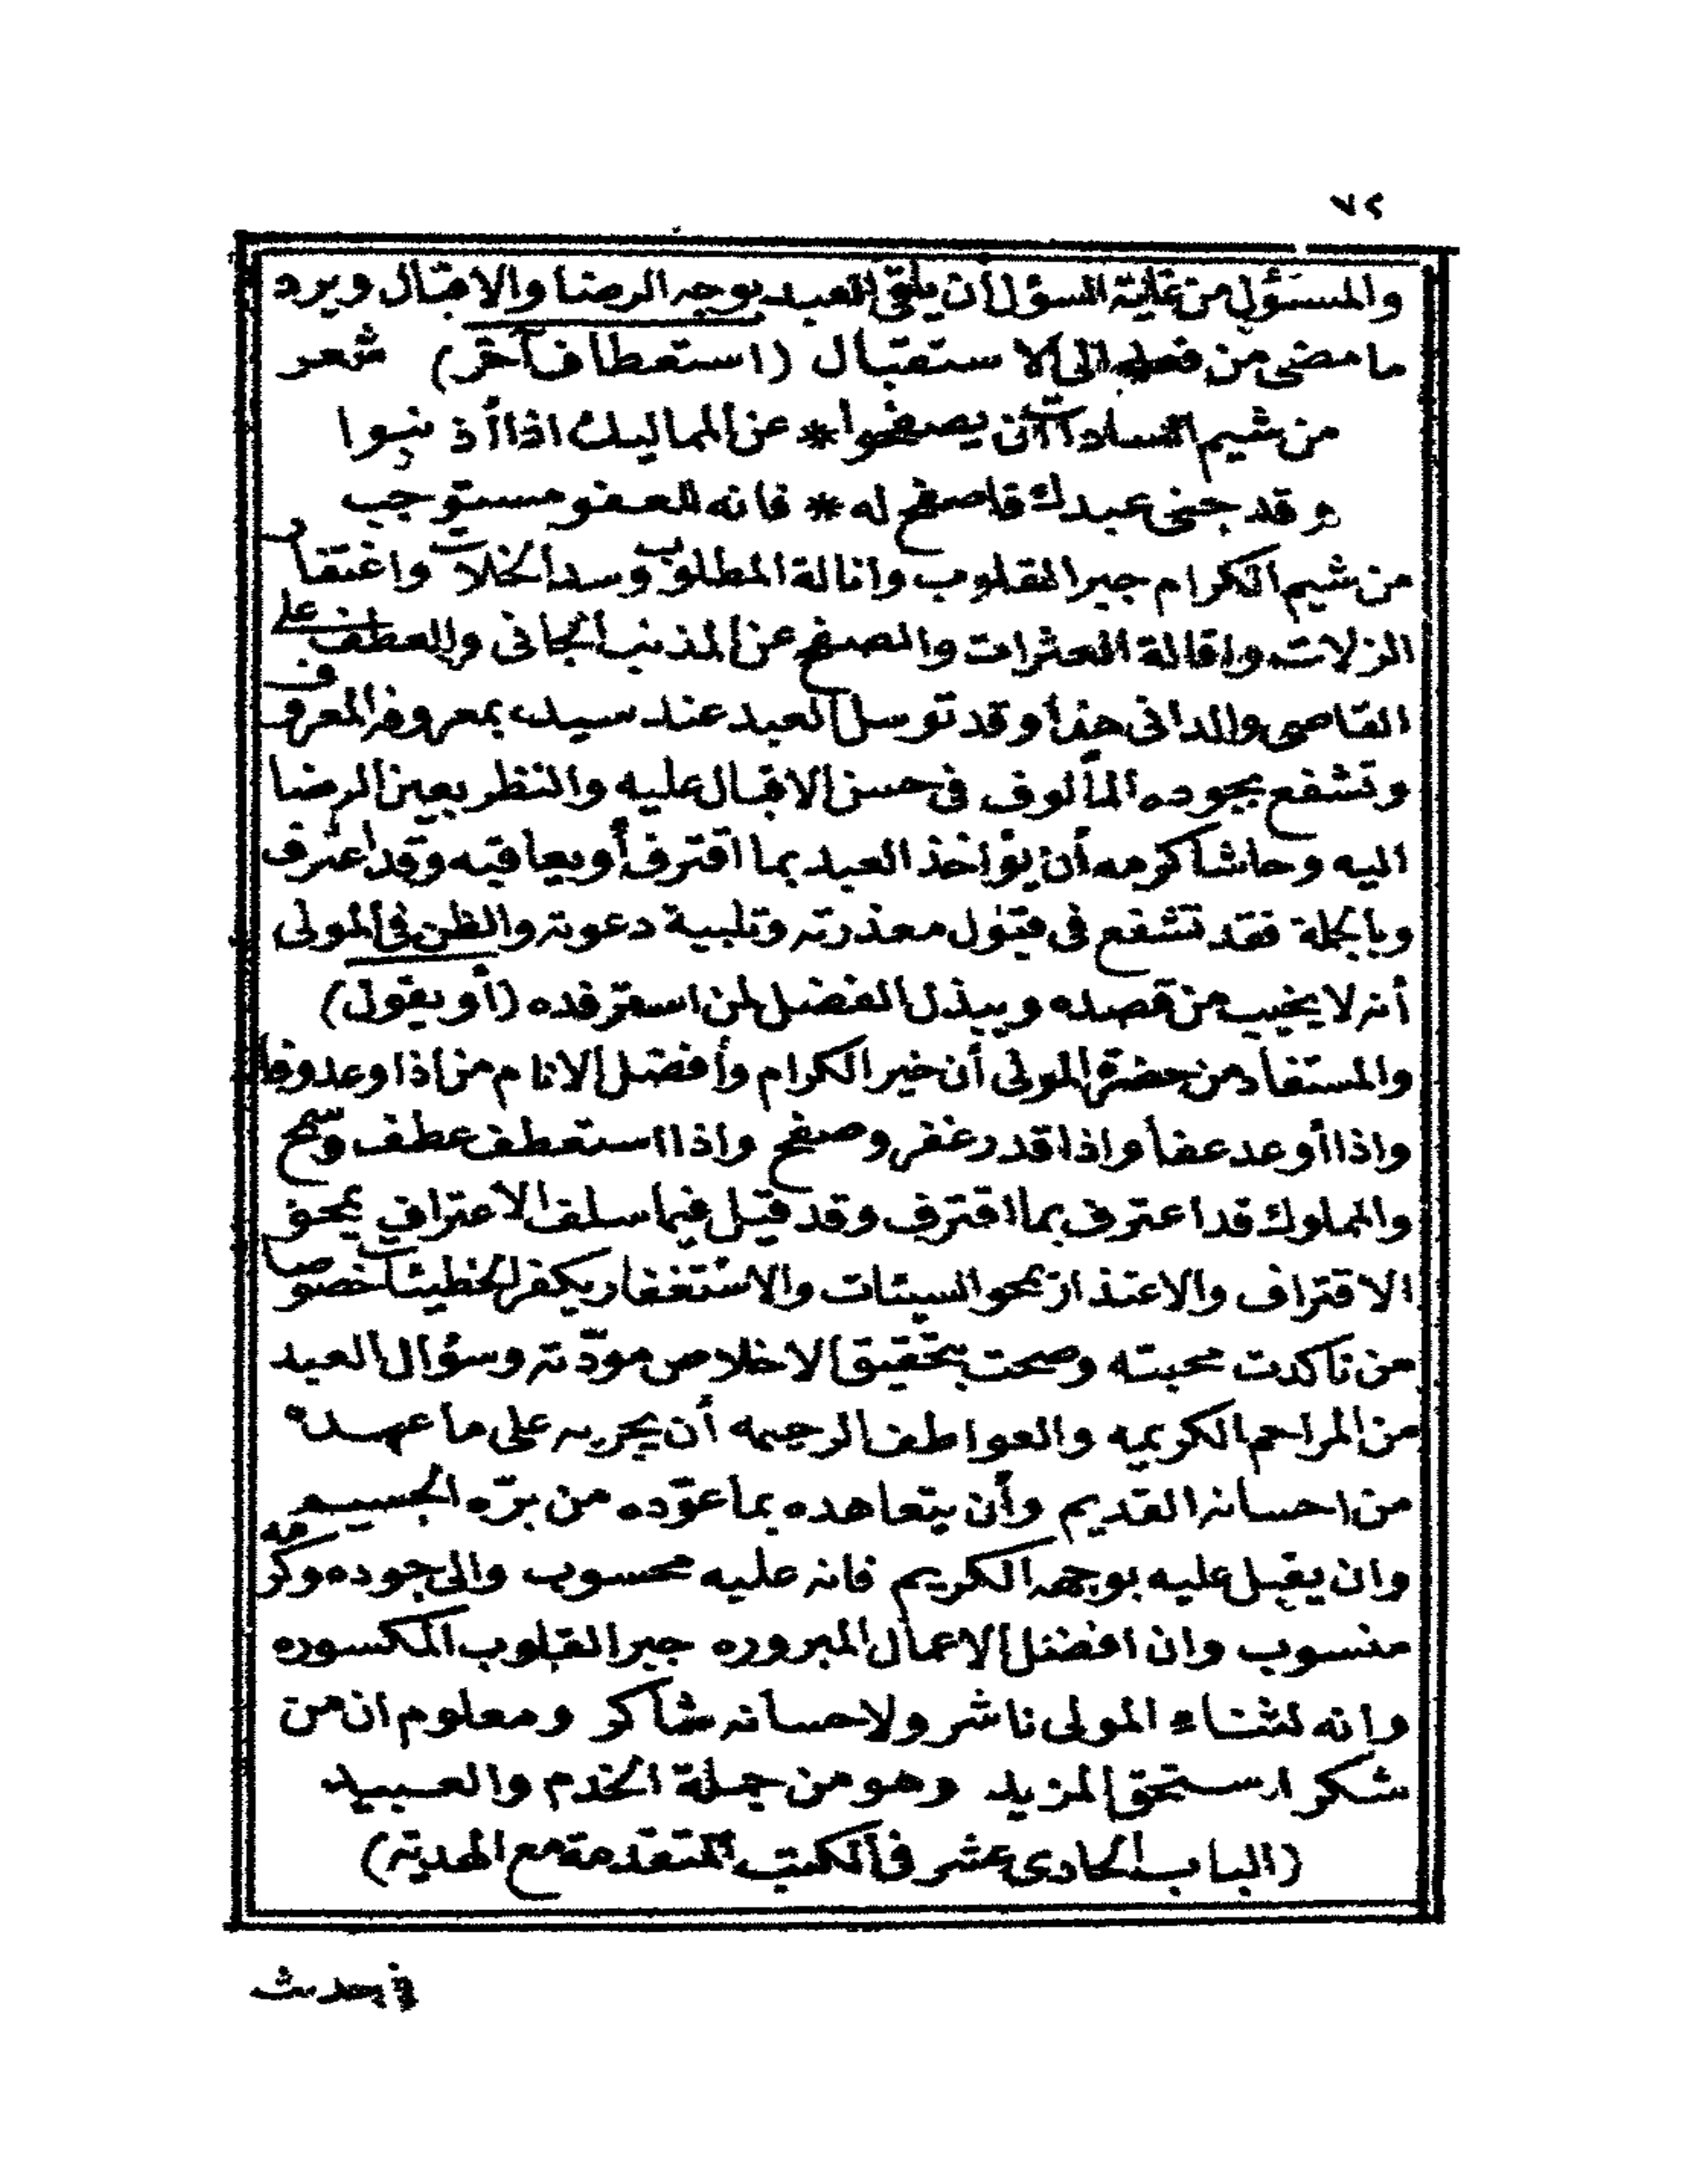 ٧٢
والمسؤل من غاية السؤل أن يلقى العبد بوجه الرضا والاقبال ويرد
ما مضى من فعله الى الاستقبال (استعطاف آخر) شعر
من شيم السادات أن يصفحوا * عن المماليك اذا أذنبوا
وقد جنى عبدك فاصفح له * فانه للعفو مستوجب
من شيم الكرام جبر القلوب وانالة المطلوب وسد الخلات واغتفار
الزلات واقالة العثرات والصفح عن المذنب الجانى والعطف على
القاصى والدانى هذا وقد توسل العبد عند سيده بمعروفه المعروف
وتشفع بجوده المألوف فى حسن الاقبال عليه والنظر بعين الرضا
اليه وحاشا كرمه أن يؤاخذ العبد بما اقترف أو يعاقبه وقد اعترف
وبالجملة فقد تشفع فى قبول معذرته وتلبية دعوته والظن فى المولى
أنه لا يخيب من قصده ويبذل الفضل لمن استرفده (أو يقول)
والمستفاد من حضرة المولى أن خير الكرام وأفضل الانام من اذا وعد وفا
واذا أوعد عفا واذا قدر غفر وصفح واذا استعطف عطف وسمح
والمملوك قد اعترف بما اقترف وقد قيل فيما سلف الاعتراف يمحق
الاقتراف والاعتذار يمحو السيئات والاستغفار يكفر الخطيئات خصوصا
من تأكدت محبته وصحت بتحقيق الاخلاص مودّته وسؤال العبد
من المراحم الكريمه والعواطف الرحيمه أن يجريه على ما عهده
من احسانه القديم وأن يتعاهده بما عوّده من برّه الجسيم
وان يقبل عليه بوجهه الكريم فانه عليه محسوب والى جوده وكرمه
منسوب وان افضل الاعمال المبروره جبر القلوب المكسوره
وانه لثناء المولى ناشر ولاحسانه شاكر ومعلوم ان من
شكر استحق المزيد وهو من جملة الخدم والعبيد
(الباب الحادى عشر فى الكتب المتقدمة مع الهدية)
فى حديث